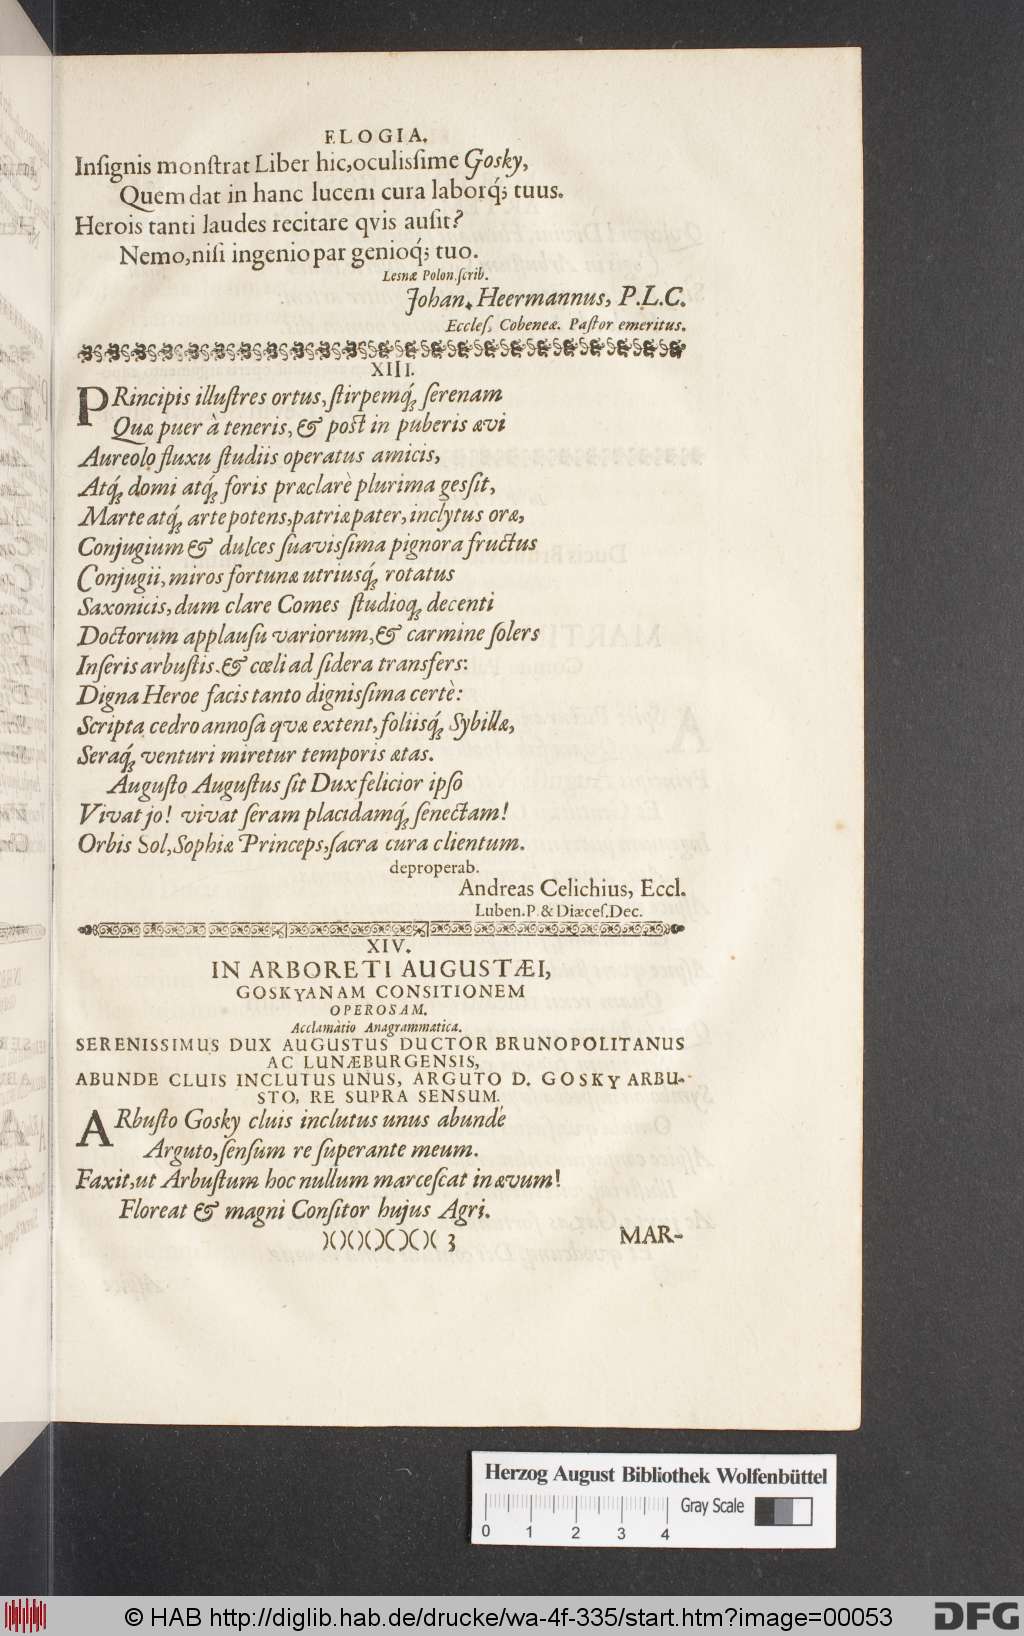 ELOGIA.
Inſignis monſtrat Liber hic,oculisſime Gosky,
Quem dat in hanc lucem cura laborq́; tuus.
Herois tanti laudes recitare qvis auſit?
Nemo,niſi ingenio par genioq́; tuo.
Lesnæ Polon.ſcrib.
Johan. Heermannus, P.L.C.
Eccleſ. Cobeneæ. Paſtor emeritus.
XIII.
PRincipis illuſtres ortus, ſtirpemq́; ſerenam
Quæ puer à teneris, & poſt in puberis ævi
Aureolo fluxu ſtudiis operatus amicis,
Atq́; domi atq́; foris præclarè plurima gesſit,
Marte atq́; arte potens,patriæ pater, inclytus oræ,
Conjugium & dulces ſuavisſima pignora fructus
Conjugii, miros fortunæ utriusq́; rotatus
Saxonicis, dum clare Comes ſtudioq; decenti
Doctorum applauſu variorum, & carmine ſolers
Inſeris arbuſtis. & cœli ad ſidera transfers:
Digna Heroe facis tanto dignisſima certè:
Scripta cedro annoſa qvæ extent, foliisq́; Sybillæ,
Seraq́; venturi miretur temporis ætas.
Auguſto Auguſtus ſit Dux felicior ipſo
Vivat jo! vivat ſeram placidamq́; ſenectam!
Orbis Sol, Sophiæ Princeps, ſacra cura clientum.
deproperab.
Andreas Celichius, Eccl.
Luben.P. & Diæceſ.Dec.
XIV.
IN ARBORETI AUGUSTÆI,
GOSKYANAM CONSITIONEM
OPEROSAM.
Acclamàtio Anagrammatica.
SERENISSIMUS DUX AUGUSTUS DUCTOR BRUNOPOLITANUS
AC LUNÆBURGENSIS,
ABUNDE CLUIS INCLUTUS UNUS, ARGUTO D. GOSKY ARBU-
STO, RE SUPRA SENSUM.
ARbuſto Gosky cluis inclutus unus abunde
Arguto, ſenſum re ſuperante meum.
Faxit, ut Arbuſtum hoc nullum marceſcat in ævum!
Floreat & magni Conſitor hujus Agri.
)()()()()()()( 3
MAR-
Herzog August Bibliothek Wolfenbüttel
Gray Scale
0 1 2 3 4
© HAB http://diglib.hab.de/drucke/wa-4f-335/start.htm?image=00053
DFG